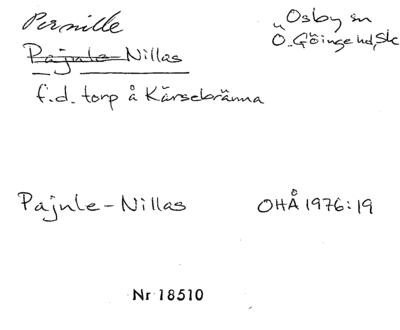 Pernille
Osby sn
Ö. Göinge hd, Sk
Pajnle-Nillas
f.d. torp å Kärsebränna
Pajnle-Nillas OHÅ 1976:19
Nr 18510